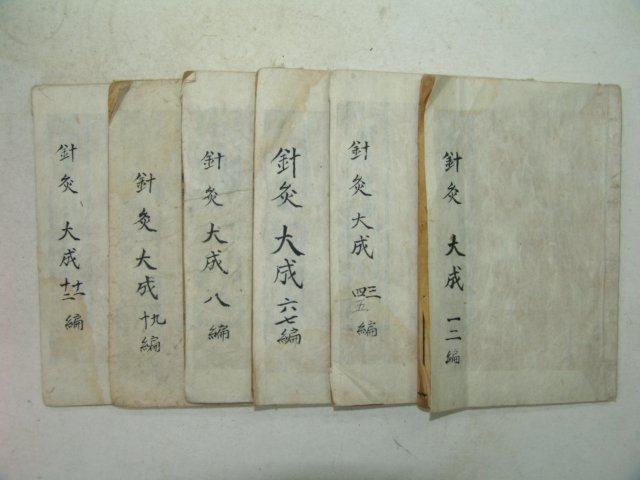 針灸 大成 一二 編
針灸 大成 三四五 編
針灸 大成 六七 編
針灸 大成 八 編
針灸 大成 九十 編
針灸 大成 十一十二 編